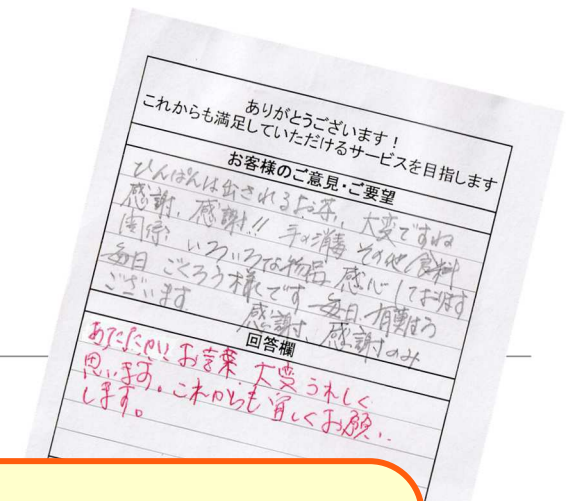 ありがとうございます！
これからも満足していただけるサービスを目指します
お客様のご意見・ご要望
ひんぱんは出されるお茶、大変ですね
感謝、感謝!! 手の消 その他 食料
いろいろな物品 感心しております
毎日 ごくろう様です 毎日、有難う
ございます 感謝、感謝のみ
回答欄
あたたかい お言葉 大変 うれしく
思います。これからも宜しくお願い
します。